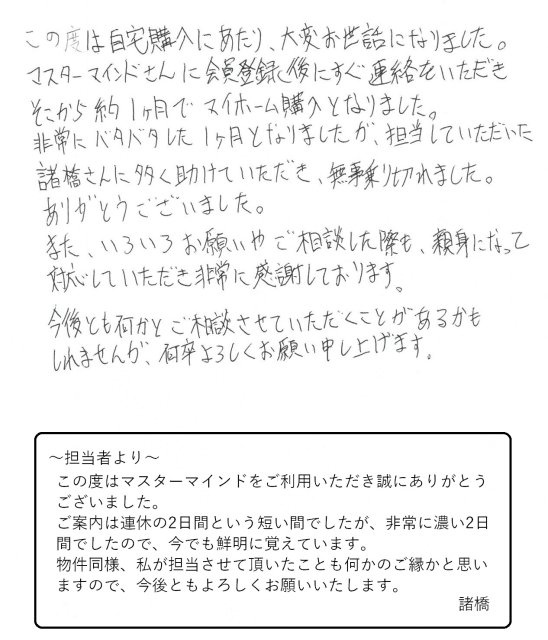 この度は自宅購入にあたり、大変お世話になりました。
マスターマインドさんに会員登録し後にすぐ連絡をいただき
そこから約1ヶ月でマイホーム購入となりました。
非常にバタバタした1ヶ月となりましたが、担当していただいた
諸橋さんに多く助けていただき、無事乗り切れました。
ありがとうございました。
また、いろいろお願いやご相談した際も、親身になって
対応していただき非常に感謝しております。
今後とも何かとご相談させていただくことがあるかも
しれませんが、何卒よろしくお願い申し上げます。
～担当者より～
この度はマスターマインドをご利用いただき誠にありがとう
ございました。
ご案内は連休の2日間という短い間でしたが、非常に濃い2日
間でしたので、今でも鮮明に覚えています。
物件同様、私が担当させて頂いたことも何かのご縁かと思い
ますので、今後ともよろしくお願いいたします。
諸橋